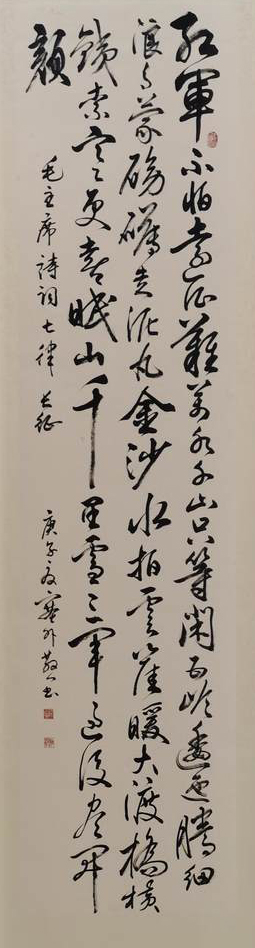 紅軍不怕遠征難萬水千山只等閑五嶺逶迤騰細
浪烏蒙磅礴走泥丸金沙水拍雲崖暖大渡橋橫
鐵索寒更喜岷山千里雪三軍過後盡開
顏
毛主席詩詞七律 長征
庚子夏塞外